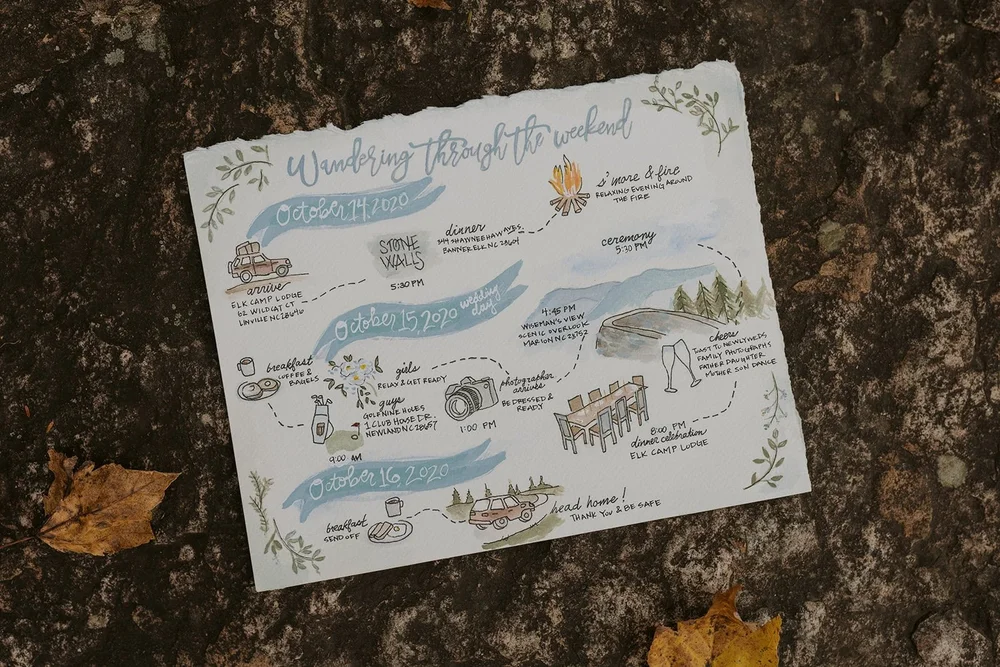 Wandering through the weekend
October 14, 2020
arrive
ELK CAMP LODGE
62 WILDCAT CT
LINVILLE NC 28646
STONE
WALLS
5:30 PM
dinner
344 SHAWNEEHAW AVE S.
BANNER ELK NC 28604
s'more & fire
RELAXING EVENING AROUND
THE FIRE
October 15, 2020 wedding
day
breakfast
COFFEE &
BAGELS
girls
RELAX & GET READY
guys
GOLF NINE HOLES
1 CLUB HOUSE DR.
NEWLAND NC 28657
9:00 AM
1:00 PM
photographer
arrives
BE DRESSED &
READY
4:45 PM
WISEMAN'S VIEW
SCENIC OVERLOOK
MARION NC 28752
ceremony
5:30 PM
cheers
TOAST TO NEWLYWEDS
FAMILY PHOTOGRAPHS
FATHER DAUGHTER
MOTHER SON DANCE
8:00 PM
dinner celebration
ELK CAMP LODGE
October 16, 2020
breakfast
SEND OFF
head home!
THANK YOU & BE SAFE